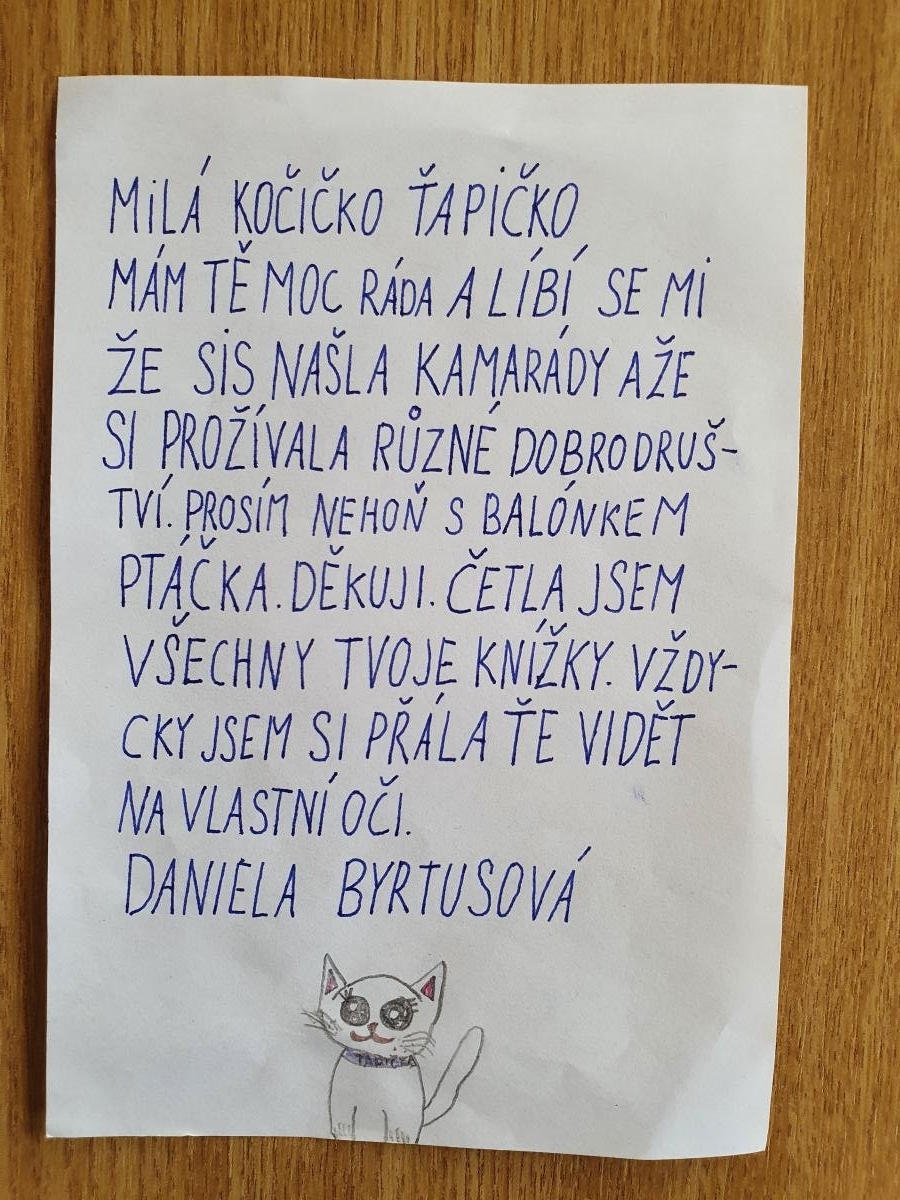 MILÁ KOČIČKO ŤAPIČKO
MÁM TĚ MOC RÁDA A LÍBÍ SE MI
ŽE SIS NAŠLA KAMARÁDY A ŽE
SI PROŽÍVALA RŮZNÉ DOBRODRUŠ-
TVÍ. PROSÍM NEHOŇ S BALÓNKEM
PTÁČKA. DĚKUJI. ČETLA JSEM
VŠECHNY TVOJE KNÍŽKY. VŽDY-
CKY JSEM SI PŘÁLA ŤE VIDĚT
NA VLASTNÍ OČI.
DANIELA BYRTUSOVÁ
ŤAPIČKA